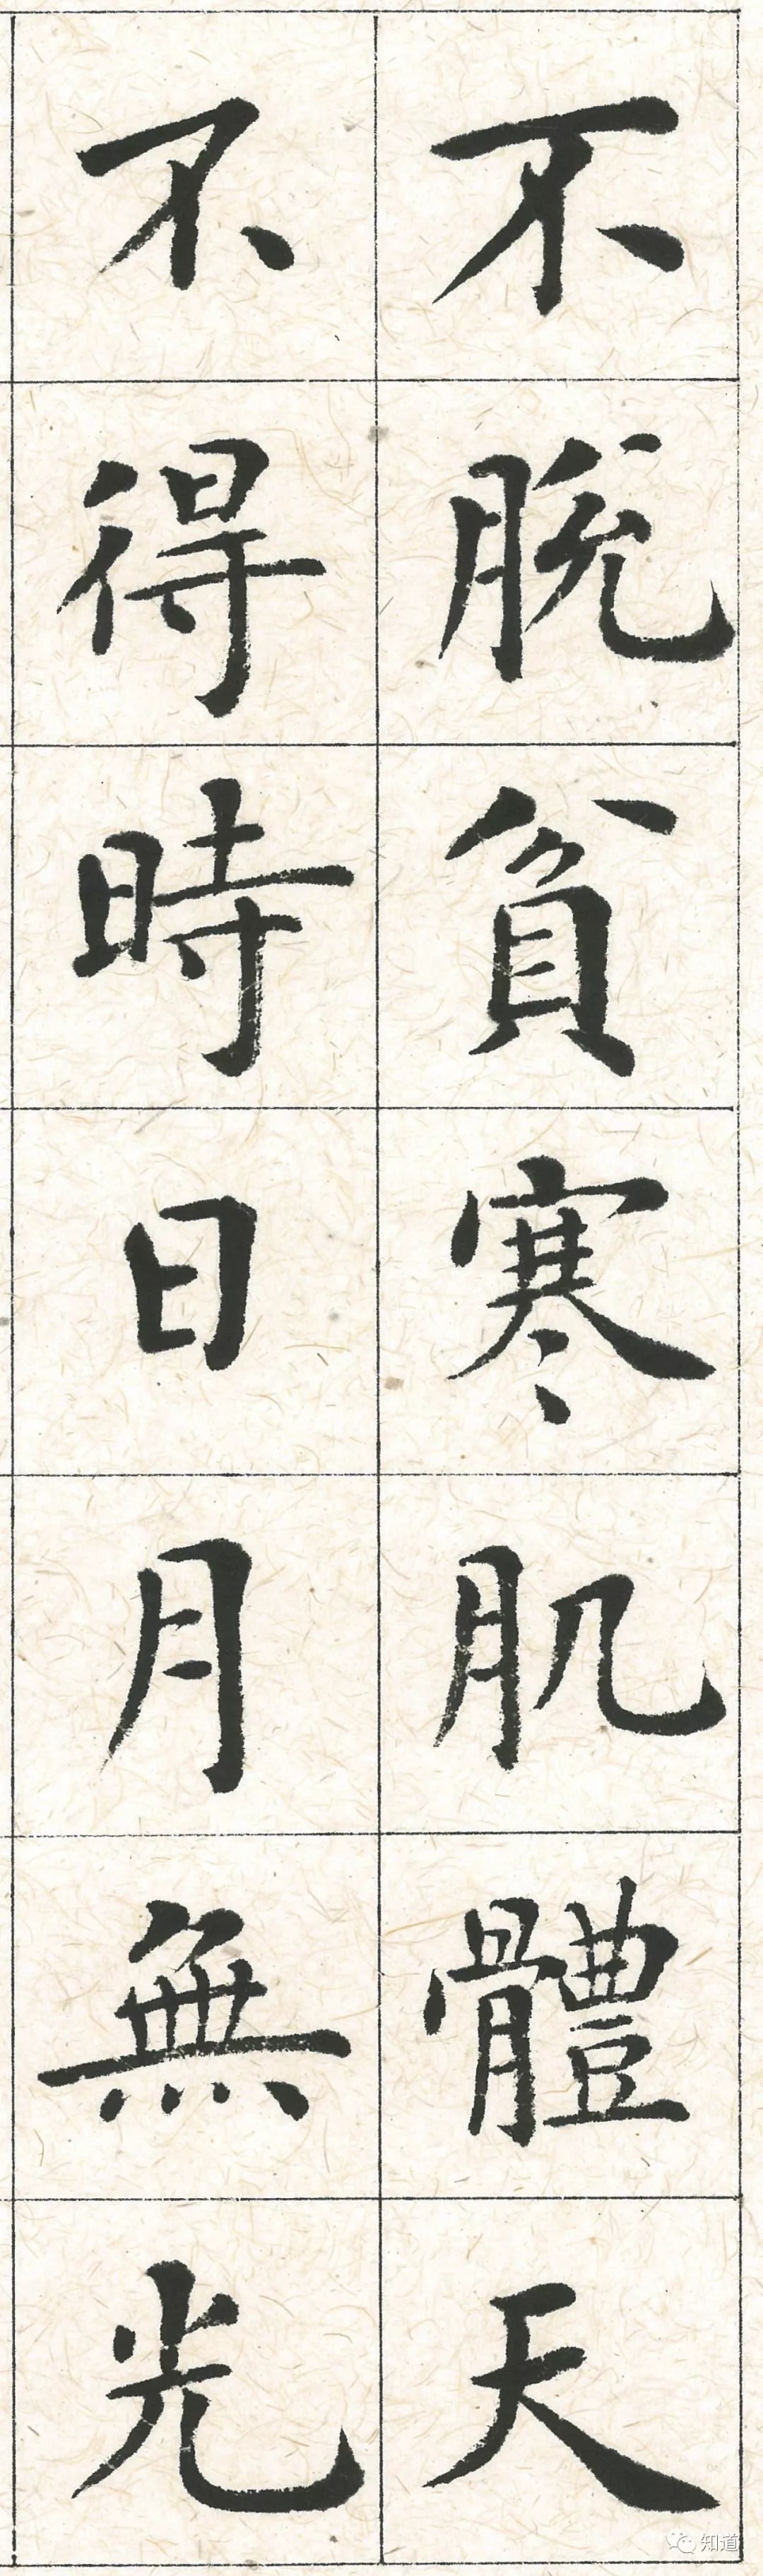 不脫貧寒肌體天
不得時日月無光
知道